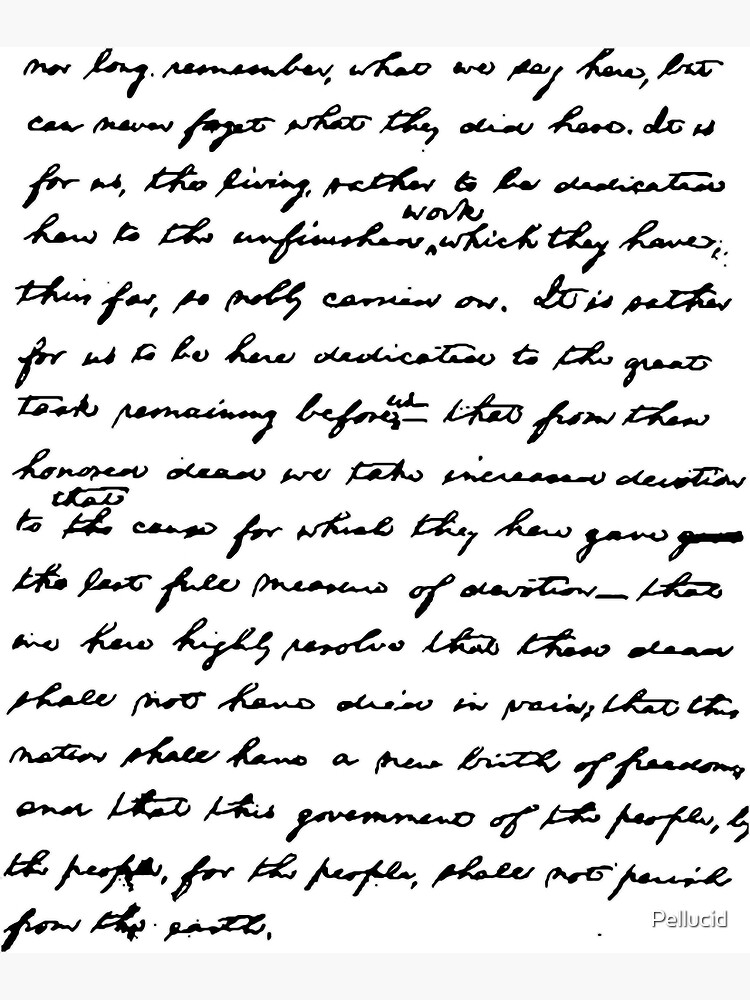 nor long remember, what we say here, but
can never forget what they did here. It is
for us, the living, rather to be dedicated
work
here to the unfinished ^ which they have,
thus far, so nobly carried on. It is rather
for us to be here dedicated to the great
us
task remaining before — that from these
honored dead we take increased devotion
that
to the cause for which they here gave gave
the last full measure of devotion — that
we here highly resolve that these dead
shall not have died in vain; that this
nation shall have a new birth of freedom,
and that this government of the people, by
the people, for the people, shall not perish
from the earth.
Pellucid